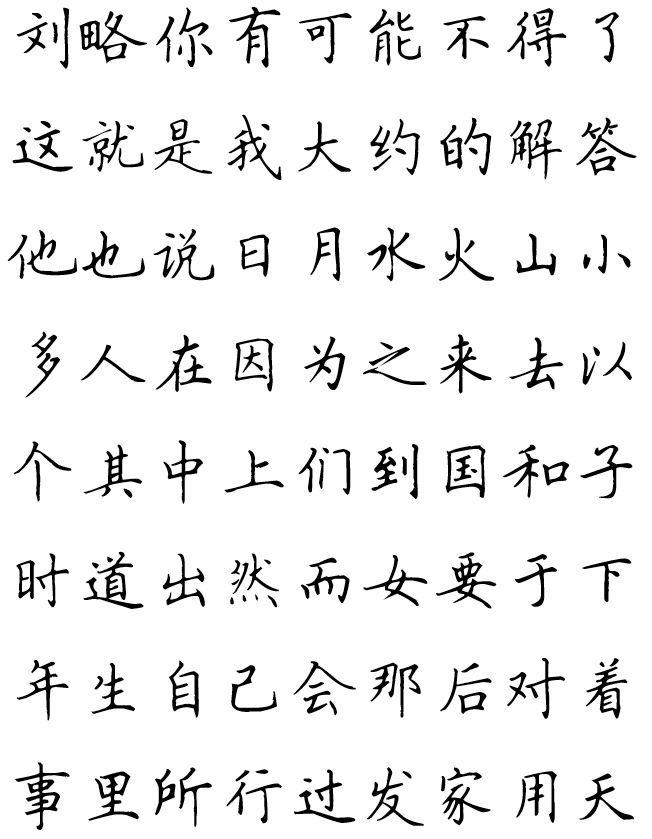 刘略你有可能不得了
这就是我大约的解答
他也说日月水火山小
多人在因为之来去以
个其中上们到国和子
时道出然而女要于下
年生自己会那后对着
事里所行过发家用天